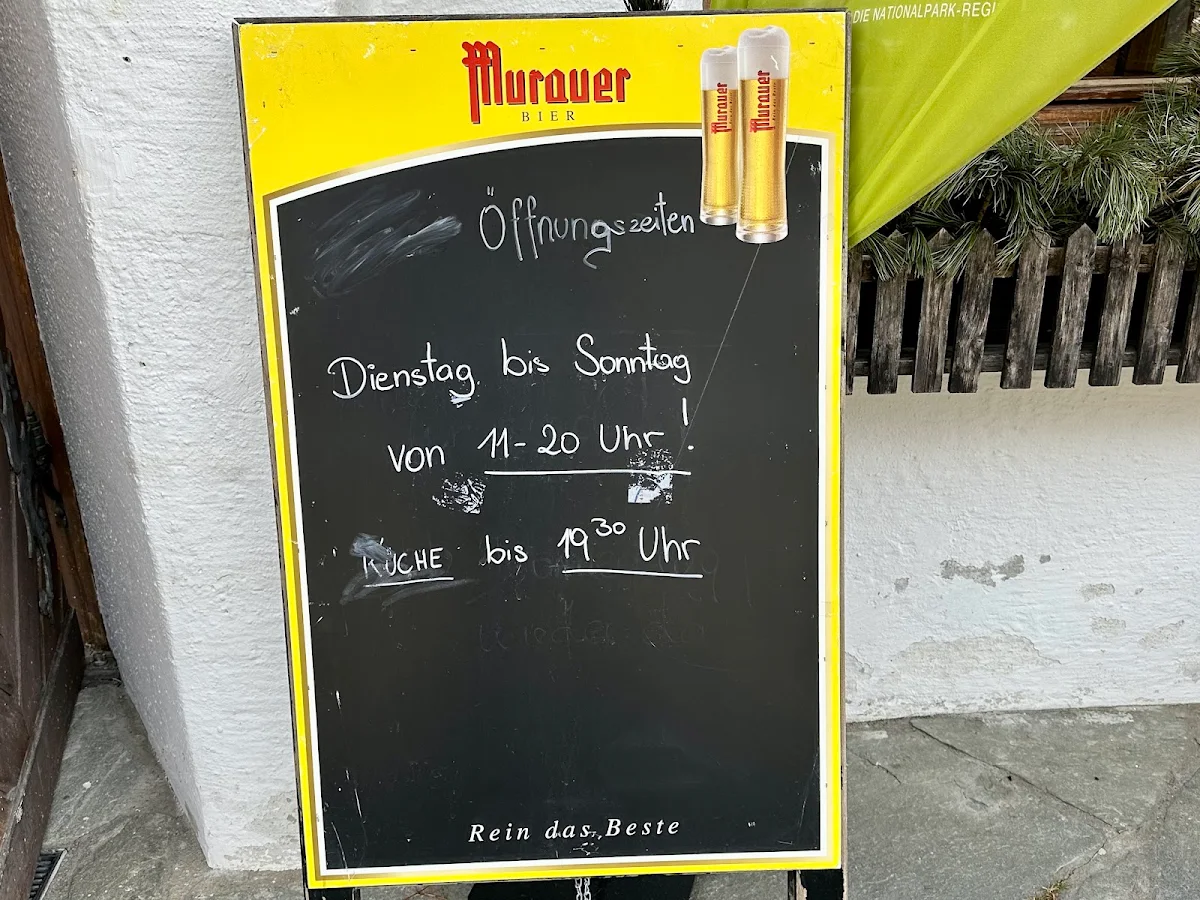 DIE NATIONALPARK-REGI
Murauer
BIER
Murauer
Murauer
Öffnungszeiten
Dienstag bis Sonntag
von 11-20 Uhr!
KÜCHE bis 19³⁰ Uhr
Rein das Beste